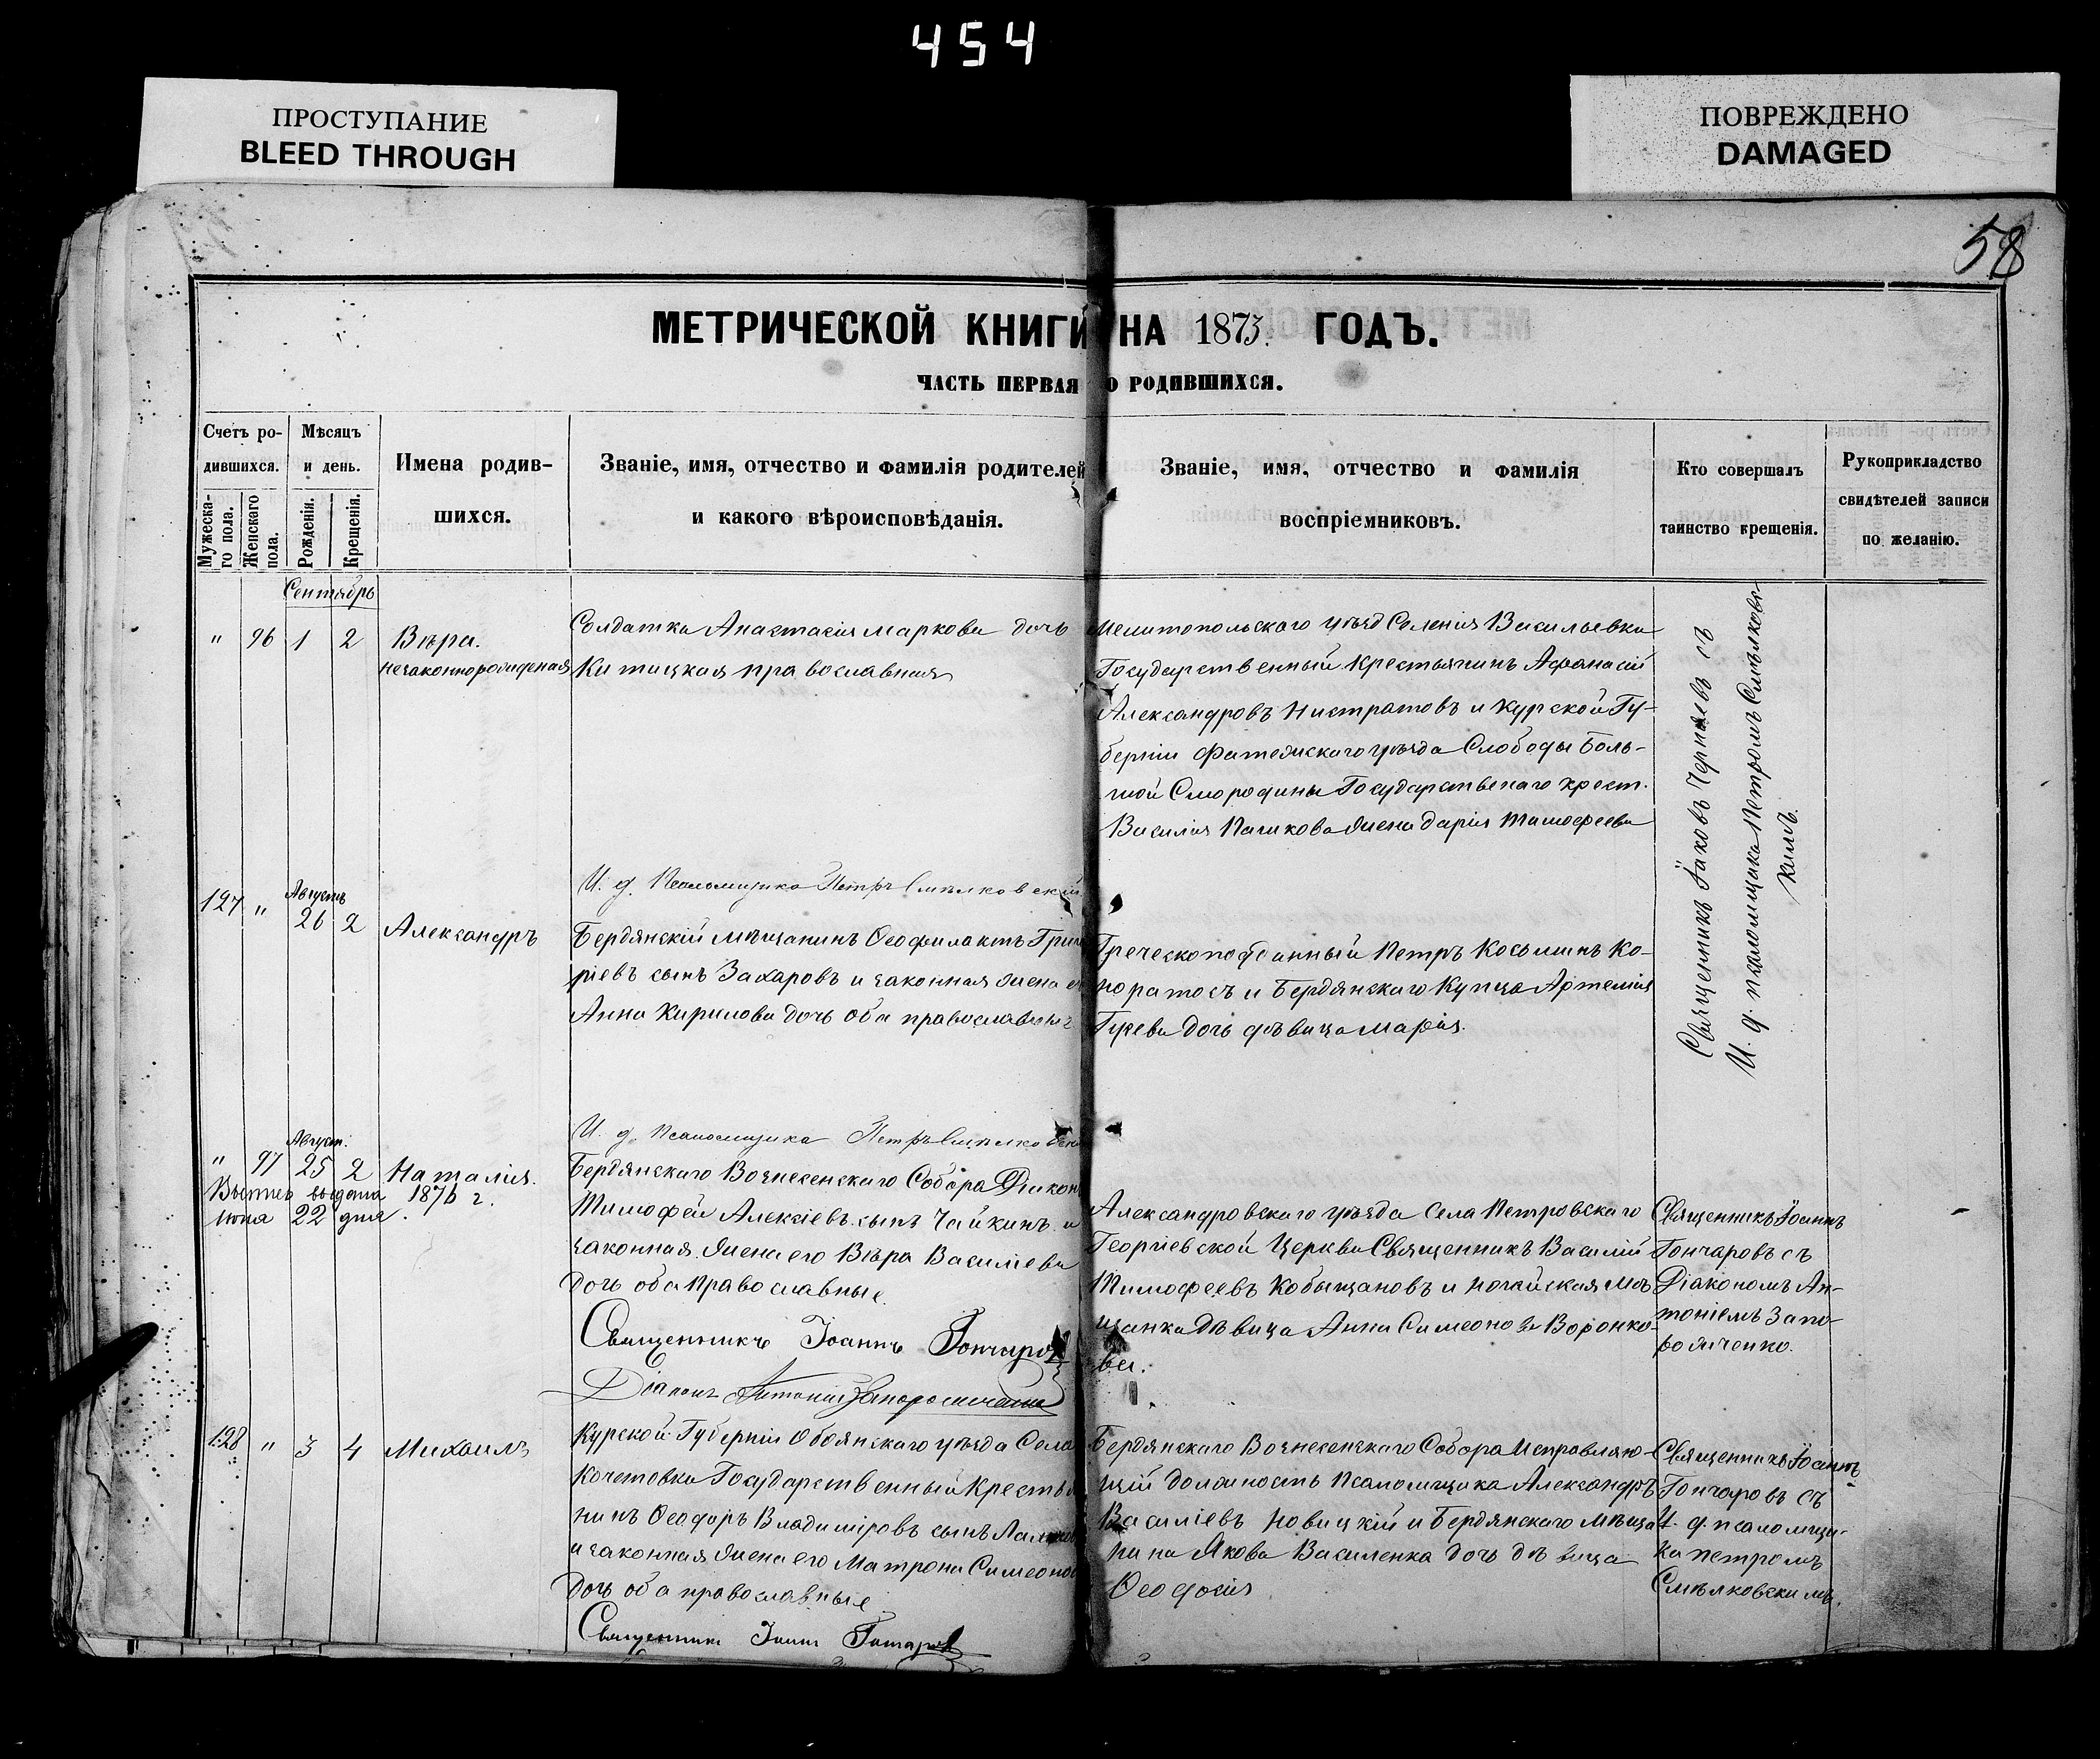 454
ПРОСТУПАНИЕ
BLEED THROUGH
ПОВРЕЖДЕНО
DAMAGED
58
МЕТРИЧЕСКОЙ КНИГИ НА 1873. ГОДЪ.
ЧАСТЬ ПЕРВАЯ О РОДИВШИХСЯ.
Счетъ ро-
дившихся.
Мужеска-
го пола.
Женскаго
пола.
Мѣсяцъ
и день.
Рожденія.
Крещенія.
Имена родив-
шихся.
Званіе, имя, отчество и фамилія родителей
и какого вѣроисповѣданія.
Званіе, имя, отчество и фамилія
воспріемниковъ.
Кто совершалъ
таинство крещенія.
Рукоприкладство
свидѣтелей записи
по желанію.
Сентябрь
" 96 1 2 Вѣра.
незаконнорожденая
Солдатка Анастасія Маркова дочь
Китицкая православная
Мелитопольскаго уѣзд Селенія Васильевки
Государственный крестьянинъ Афанасій
Александровъ Нистратовъ и Курской Гу-
берніи Фатежскаго уѣзда Слободы Боль-
шой Смородины Государственаго крест.
Василія Пашкова жена Дарія Тимофеева
Священникъ Іаковъ Черняевъ съ
И. д. псаломщика Петромъ Смѣлковс-
кимъ.
И. д. Псаломщика Петръ Смѣлковскій
127 "
Августъ
26 2 Александръ
Бердянскій мѣщанинъ Ѳеофилактъ Григо
ріевъ сынъ Захаровъ и законная жена ег
Анна Кирилова дочь оба православные
Греческоподданный Петръ Косминъ Ко-
норатосъ и Бердянскаго Купца Артемія
Гусева дочь дѣвица Марія.
И. д. Псаломщика Петръ Смѣлковскій
Август.
" 97 25 2 Наталія.
Выпись выдана 1876 г.
июня 22 дня.
Бердянскаго Вознесенскаго Собора Діаконъ
Тимофей Алексіевъ сынъ Чайкинъ и
законная жена его Вѣра Василіева
дочь оба Православные.
Александровскаго уѣзда Села Петровскаго
Георгіевской Церкви Священникъ Василій
Тимофеевъ Кобыщановъ и ногайская мѣ
щанка дѣвица Анна Симеонова Воронко-
ва.
Священникъ Іоаннъ
Гончаровъ съ
Діакономъ Ан-
тоніемъ Запо-
рожченко.
Священникъ Іоаннъ Гончаровъ
Діаконъ Антоній Запорожченко
128 " 3 4 Михаилъ
Курской Губерніи Обоянскаго уѣзда Села
Кочетовки Государственный Крестья
нинъ Ѳеодоръ Владиміровъ сынъ
и законная жена его Матрона Симеонов
дочь оба православные
Бердянскаго Вознесенскаго Собора Исправляю-
щій должность Псаломщика Александръ
Василіевъ Новицкій и Бердянскаго мѣща
нина Якова Василенка дочь дѣвица
Ѳеодосія
Священникъ Іоаннъ
Гончаровъ съ
И. д. псаломщи-
ка Петромъ
Смѣлковскимъ.
Священникъ Іоаннъ Гончаровъ